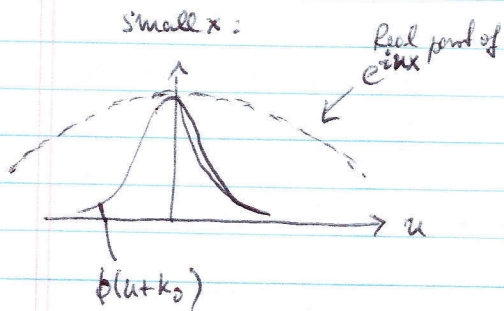 small x:
Real part of
e^{iux}
u
ϕ(u+k₀)